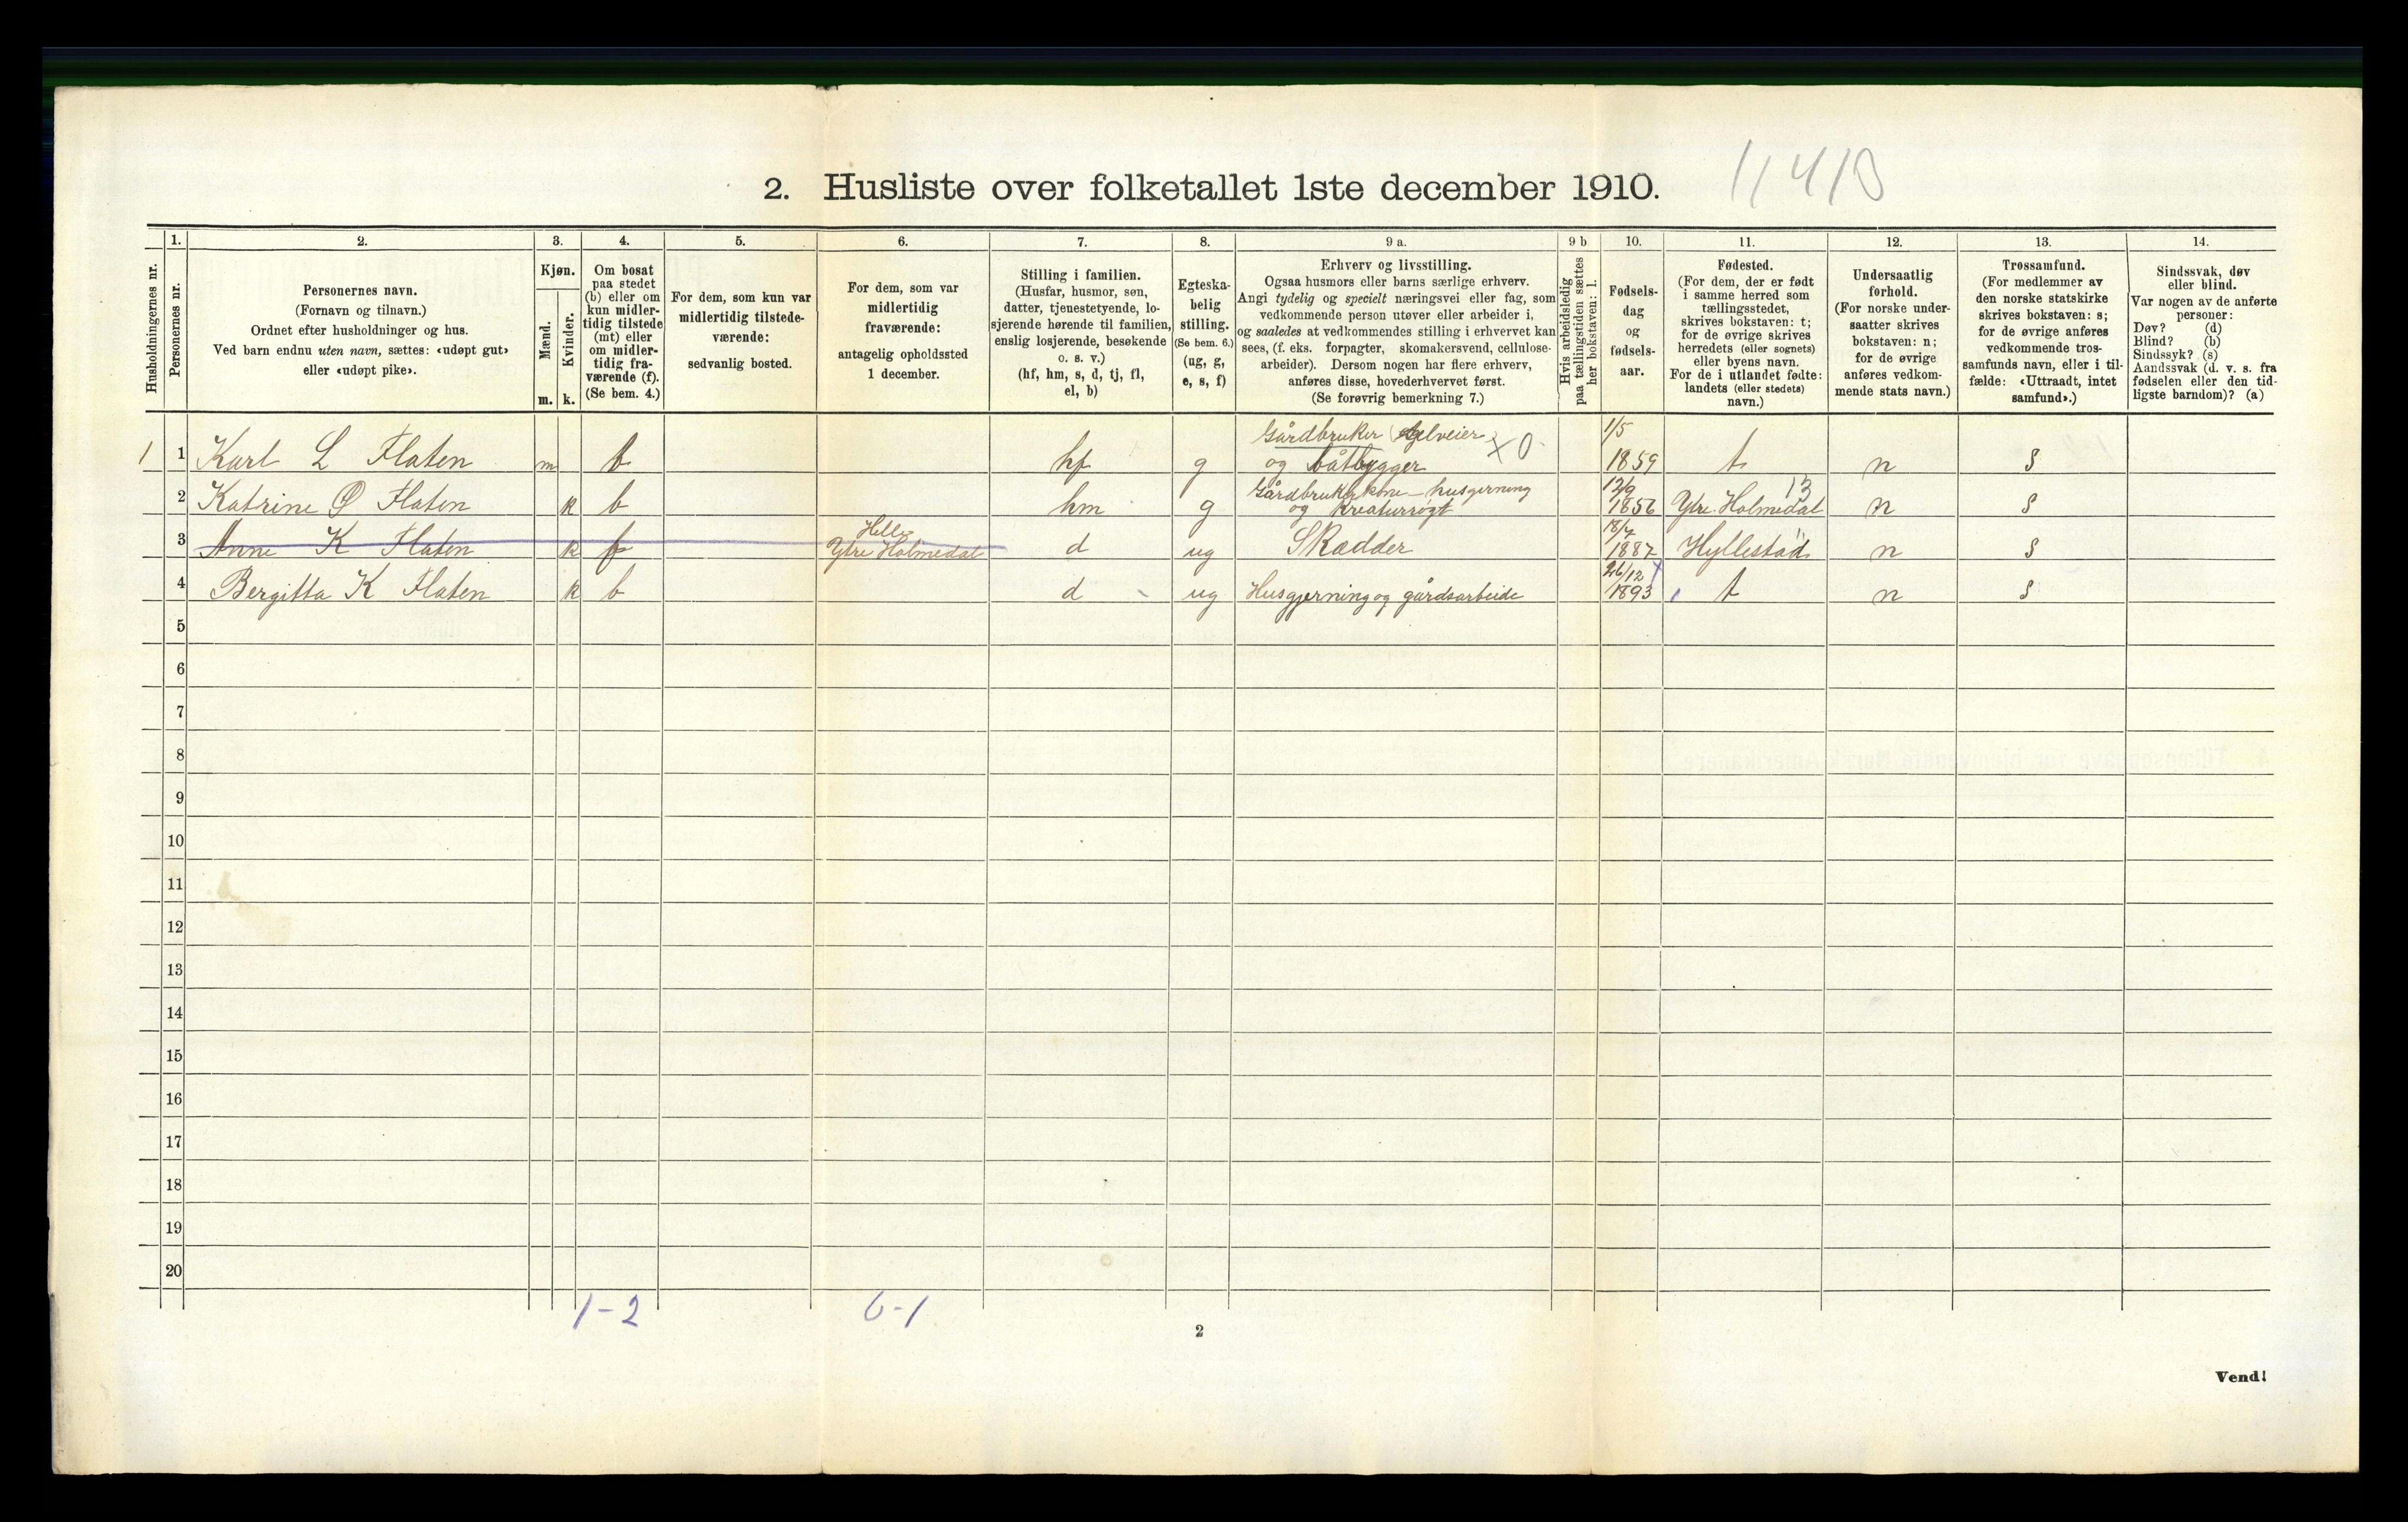 2. Husliste over folketallet 1ste december 1910.
Husholdningernes nr.
1.
Personernes nr.
2.
Personernes navn.
(Fornavn og tilnavn.)
Ordnet efter husholdninger og hus.
Ved barn endnu uten navn, sættes: «udøpt gut»
eller «udøpt pike».
3.
Kjøn.
Mænd.
Kvinder.
m. k.
4.
Om bosat
paa stedet
(b) eller om
kun midler-
tidig tilstede
(mt) eller
om midler-
tidig fra-
værende (f).
(Se bem. 4.)
5.
For dem, som kun var
midlertidig tilstede-
værende:
sedvanlig bosted.
6.
For dem, som var
midlertidig
fraværende:
antagelig opholdssted
1 december.
7.
Stilling i familien.
(Husfar, husmor, søn,
datter, tjenestetyende, lo-
sjerende hørende til familien,
enslig losjerende, besøkende
o. s. v.)
(hf, hm, s, d, tj, fl,
el, b)
8.
Egteska-
belig
stilling.
(Se bem. 6.)
(ug, g,
e, s, f)
9 a.
Erhverv og livsstilling.
Ogsaa husmors eller barns særlige erhverv.
Angi tydelig og specielt næringsvei eller fag, som
vedkommende person utøver eller arbeider i,
og saaledes at vedkommendes stilling i erhvervet kan
sees, (f. eks. forpagter, skomakersvend, cellulose-
arbeider). Dersom nogen har flere erhverv,
anføres disse, hovederhvervet først.
(Se forøvrig bemerkning 7.)
9 b
Hvis arbeidsledig
paa tællingstiden sættes
her bokstaven: l.
10.
Fødsels-
dag
og
fødsels-
aar.
11.
Fødested.
(For dem, der er født
i samme herred som
tællingsstedet,
skrives bokstaven: t;
for de øvrige skrives
herredets (eller sognets)
eller byens navn.
For de i utlandet fødte:
landets (eller stedets)
navn.)
12.
Undersaatlig
forhold.
(For norske under-
saatter skrives
bokstaven: n;
for de øvrige
anføres vedkom-
mende stats navn.)
13.
Trossamfund.
(For medlemmer av
den norske statskirke
skrives bokstaven: s;
for de øvrige anføres
vedkommende tros-
samfunds navn, eller i til-
fælde: «Uttraadt, intet
samfund».)
14.
Sindssvak, døv
eller blind.
Var nogen av de anførte
personer:
Døv? (d)
Blind? (b)
Sindssyk? (s)
Aandssvak (d. v. s. fra
fødselen eller den tid-
ligste barndom)? (a)
Gårdbruker Selveier 1/5
1 1 Karl L Flaten m b hf g og båtbygger x0 1859 t n s
Gårdbrukerkone - husgerning 12/9 13
2 Katrine O Flaten k b hm g og kreaturrøgt 1856 Ytre Holmedal n s
Helle 18/7
3 Anne K Flaten k f Ytre Holmedal d ug Skrædder 1887 Hyllestad n s
26/12
4 Bergitta K Flaten k b d ug Husgjerning og gårdsarbeide 1893 t n s
5
6
7
8
9
10
11
12
13
14
15
16
17
18
19
20
1-2 0-1
2
Vend!